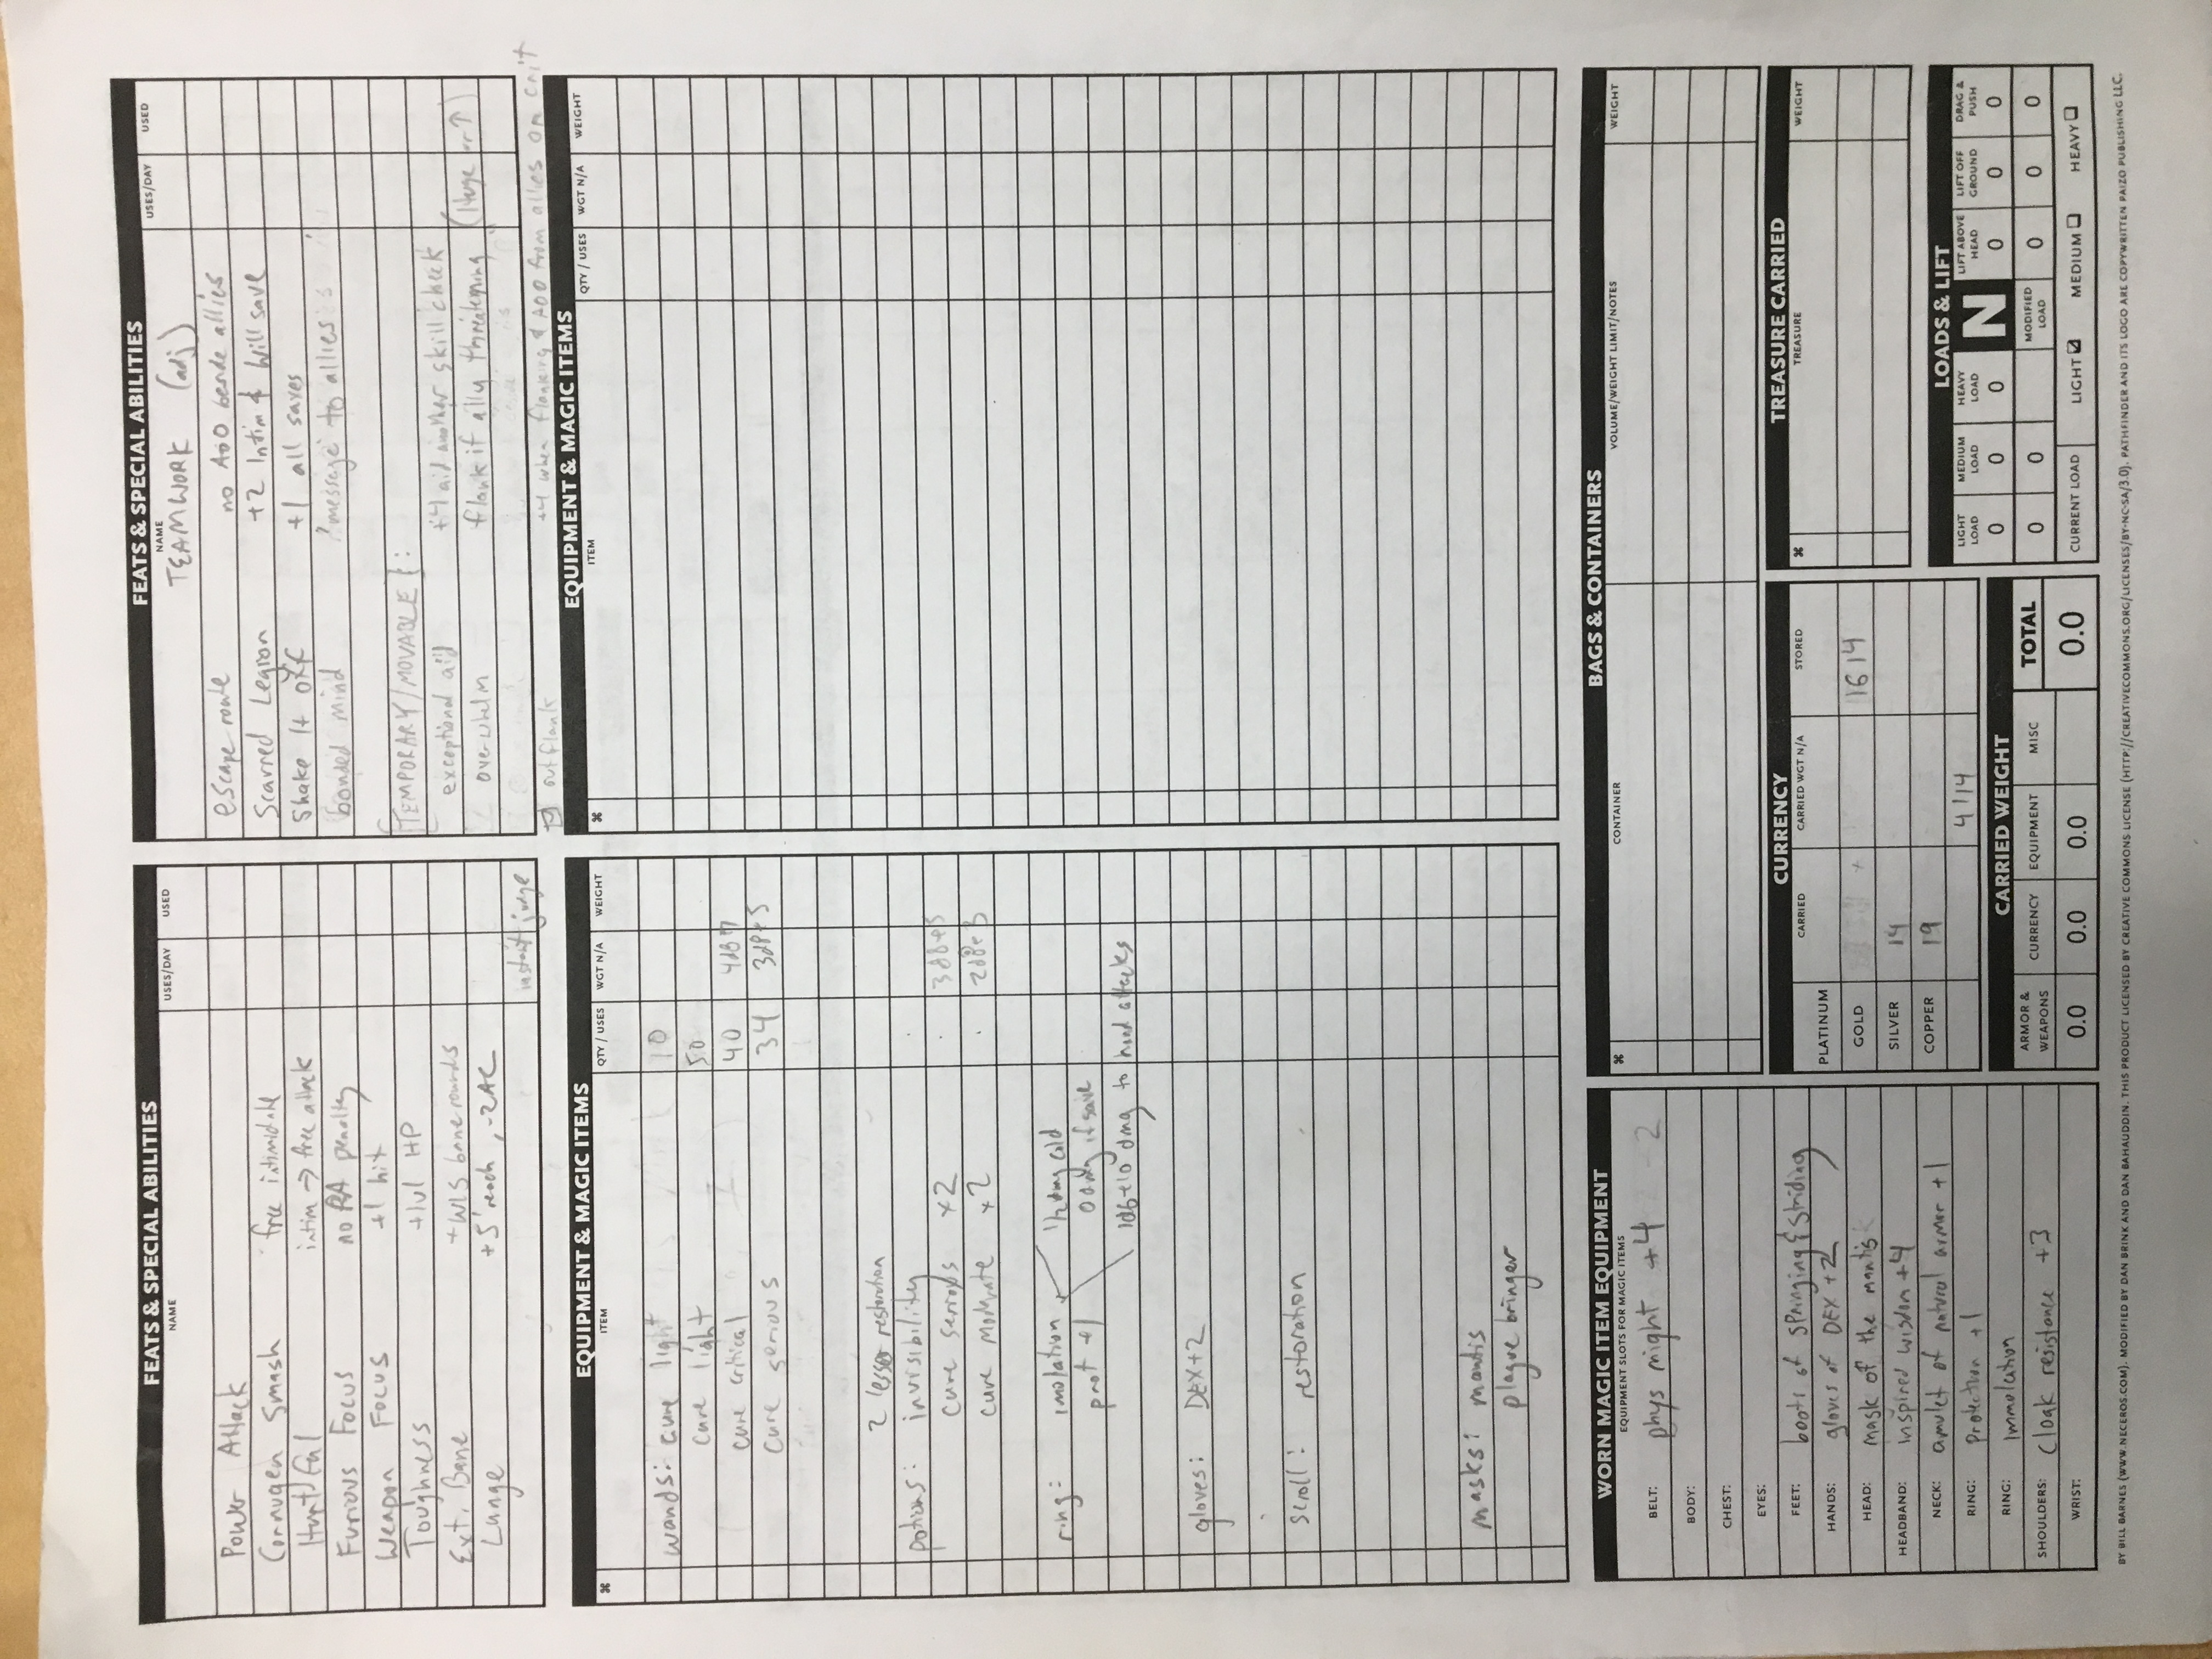 FEATS & SPECIAL ABILITIES
NAME USES/DAY USED
Power Attack
Cornugen Smash free intimidate
Hurtful intim → free attack
Furious Focus no PA penalty
Weapon Focus +1 hit
Toughness +1lvl HP
Ext. Bane +WIS bane rounds
Lunge +5' reach, -2AC
instant judge
FEATS & SPECIAL ABILITIES
NAME USES/DAY USED
TEAMWORK (adj)
escape route no AoO beside allies
Scarred Legion +2 Intim & Will save
Shake It off +1 all saves
bonded mind "message" to allies
TEMPORARY/MOVABLE:
exceptional aid +4 aid another skill check
overwhelm flank if ally threatening (Huge or ↑)
outflank +4 when flanking & AOO from allies on crit
EQUIPMENT & MAGIC ITEMS
⌘ ITEM QTY / USES WGT N/A WEIGHT
wands: cure light 10
cure light 50
cure critical 40 4d8+7
cure serious 34 3d8+5
2 lesser restoration
potions: invisibility
cure serious x2 3d8+5
cure moderate x2 2d8+3
ring: imolation 1/2 dmg cold
prot +1 0 dmg if save
1d6+10 dmg to hand attacks
gloves: DEX+2
scroll: restoration
masks: mantis
plague bringer
EQUIPMENT & MAGIC ITEMS
⌘ ITEM QTY / USES WGT N/A WEIGHT
WORN MAGIC ITEM EQUIPMENT
EQUIPMENT SLOTS FOR MAGIC ITEMS
BELT: phys might +4 2
BODY:
CHEST:
EYES:
FEET: boots of springing & striding
HANDS: gloves of DEX +2
HEAD: mask of the mantis
HEADBAND: inspired wisdom +4
NECK: amulet of natural armor +1
RING: protection +1
RING: Immolation
SHOULDERS: cloak resistance +3
WRIST:
BAGS & CONTAINERS
⌘ CONTAINER VOLUME/WEIGHT LIMIT/NOTES WEIGHT
CURRENCY
CARRIED CARRIED WGT N/A STORED
PLATINUM
GOLD 1614
SILVER 14
COPPER 19
4114
CARRIED WEIGHT
ARMOR & WEAPONS CURRENCY EQUIPMENT MISC TOTAL
0.0 0.0 0.0 0.0
TREASURE CARRIED
⌘ TREASURE WEIGHT
LOADS & LIFT
LIGHT LOAD MEDIUM LOAD HEAVY LOAD N LIFT ABOVE HEAD LIFT OFF GROUND DRAG & PUSH
0 0 0 0 0 0
0 0 MODIFIED LOAD 0 0 0
CURRENT LOAD LIGHT ☑ MEDIUM ☐ HEAVY ☐
BY BILL BARNES (WWW.NECEROS.COM). MODIFIED BY DAN BRINK AND DAN BAHAUDDIN. THIS PRODUCT LICENSED BY CREATIVE COMMONS LICENSE (HTTP://CREATIVECOMMONS.ORG/LICENSES/BY-NC-SA/3.0). PATHFINDER AND ITS LOGO ARE COPYWRITTEN PAIZO PUBLISHING LLC.